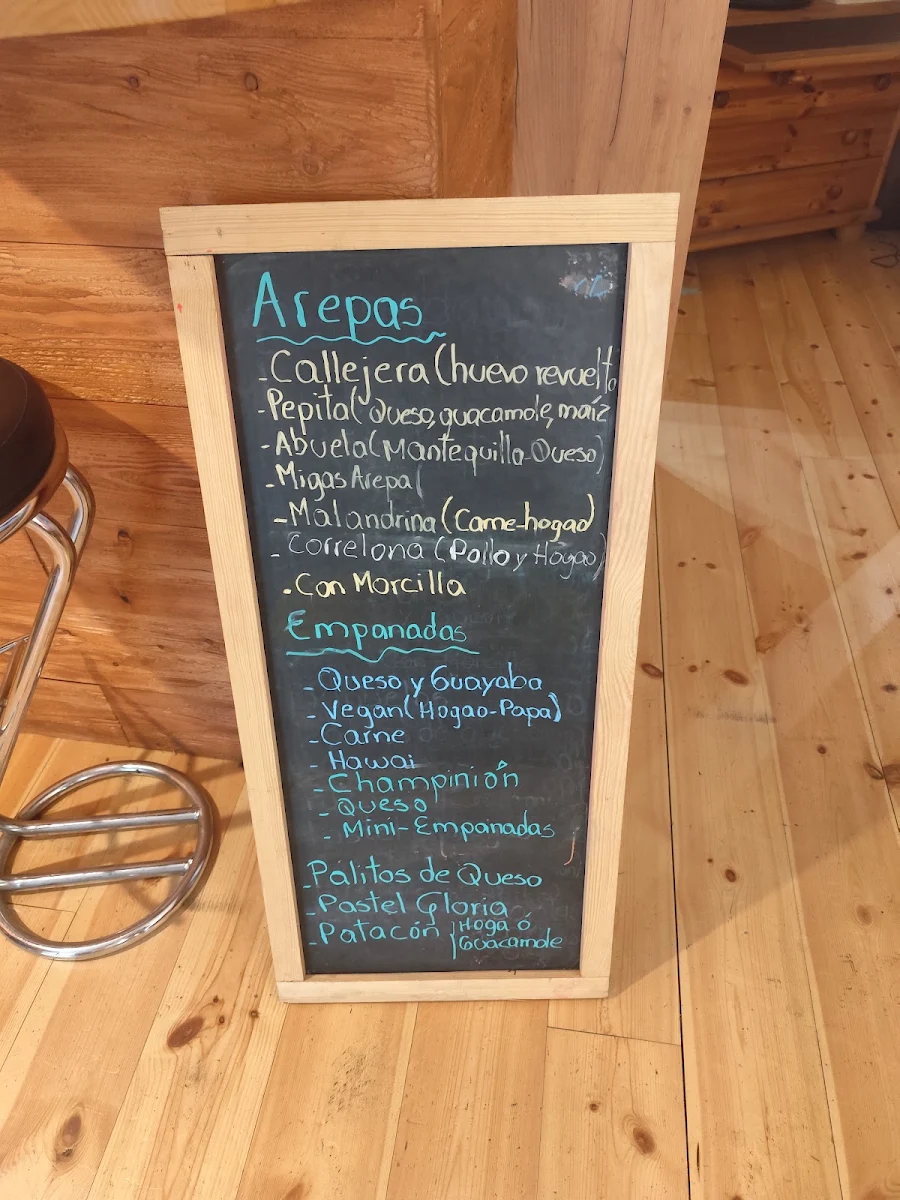 Arepas
-Callejera (huevo revuelto
-Pepita( Queso, guacamole, maíz
-Abuela(Mantequilla-Queso)
-Migas Arepa(
-Malandrina (Carne-hogao)
-Correlona (Pollo y Hogao)
.Con Morcilla
Empanadas
-Queso y Guayaba
-Vegan(Hogao-Papa)
-Carne
-Hawai
-Champinión
-Queso
-Mini-Empanadas
-Palitos de Queso
-Pastel Gloria
-Patacón Hoga ó
Guacamole